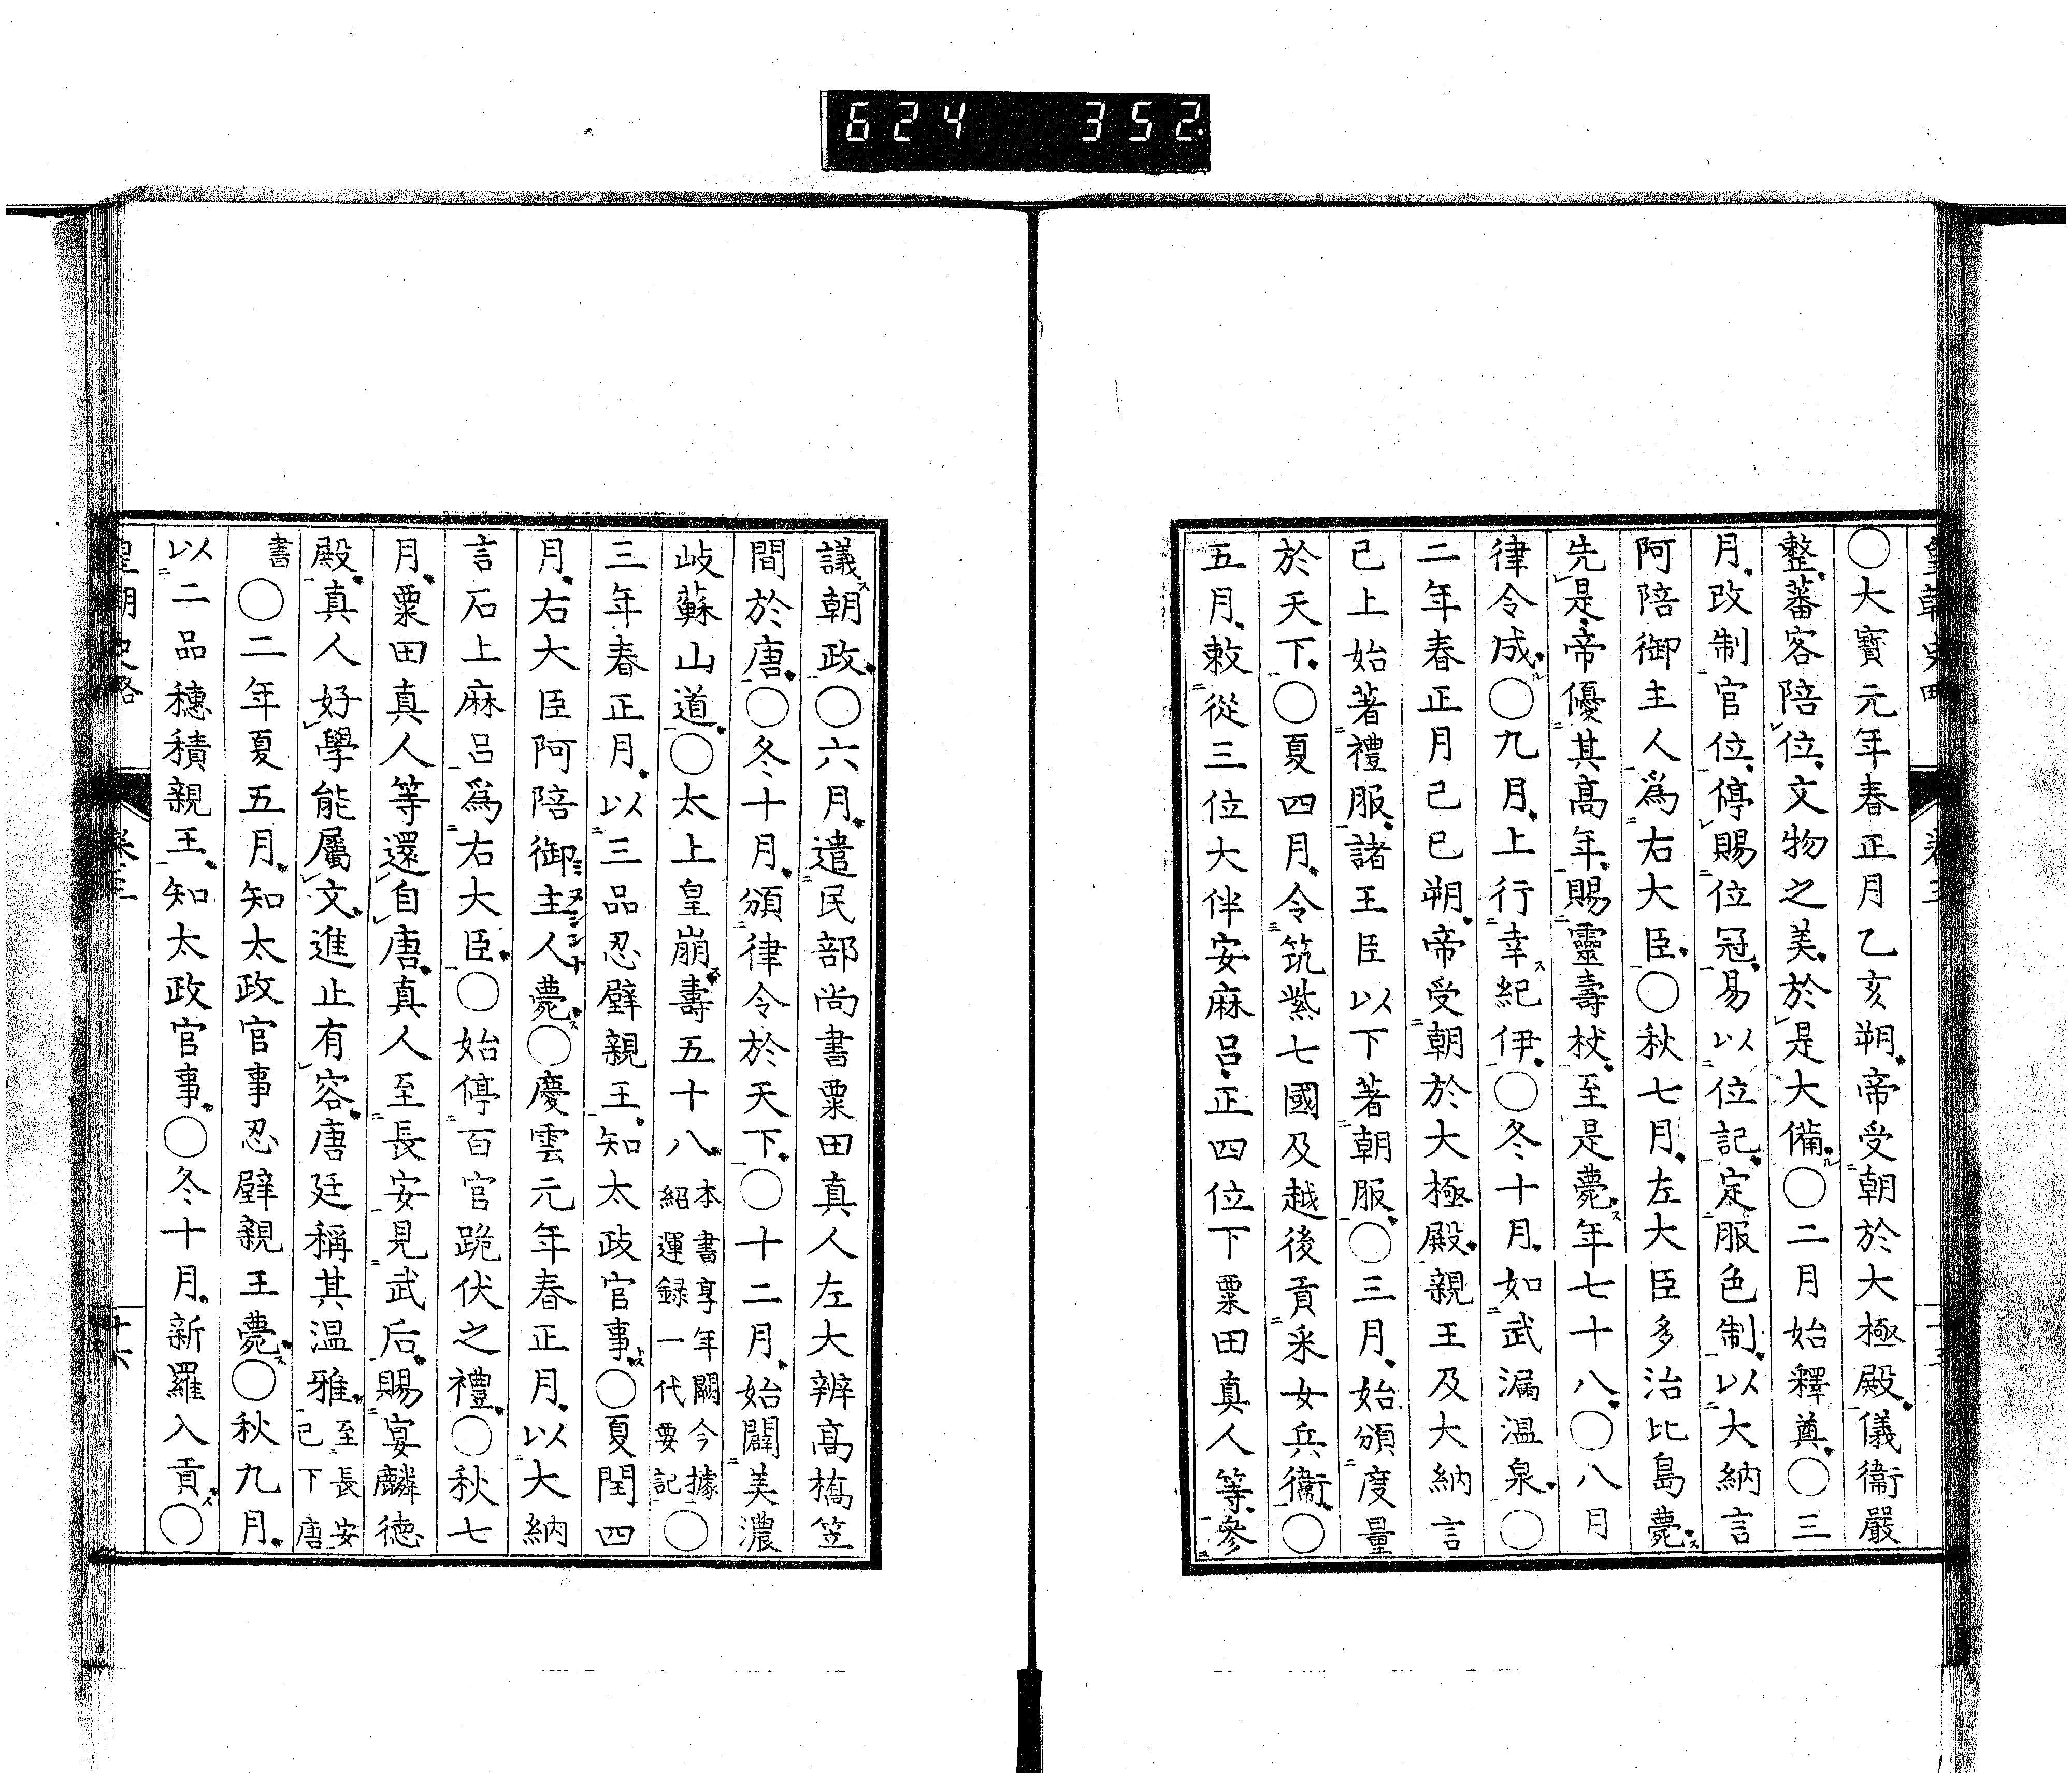 624 352
○大寳元年春正月乙亥朔帝受朝於大極殿儀衞嚴
整蕃客陪位文物之美於是大備○二月始釋奠○三
月改制官位停賜位冠易以位記定服色制以大納言
阿陪御主人爲右大臣○秋七月左大臣多治比島薨
先是帝優其髙年賜靈壽杖至是薨年七十八○八月
律令成○九月上行幸紀伊○冬十月如武漏温泉○
二年春正月己巳朔帝受朝於大極殿親王及大納言
已上始著禮服諸王臣以下著朝服○三月始頒度量
於天下○夏四月令筑紫七國及越後貢采女兵衞○
五月敕從三位大伴安麻呂正四位下粟田真人等參
議朝政○六月遣民部尚書粟田真人左大辨髙橋笠
間於唐○冬十月頒律令於天下○十二月始闢美濃
岐蘇山道○太上皇崩壽五十八本書享年闕今據紹運録一代要記○
三年春正月以三品忍壁親王知太政官事○夏閏四
月右大臣阿陪御主人薨○慶雲元年春正月以大納
言石上麻呂爲右大臣○始停百官跪伏之禮○秋七
月粟田真人等還自唐真人至長安見武后賜宴麟德
殿真人好學能屬文進止有容唐廷稱其温雅至長安已下唐
書○二年夏五月知太政官事忍壁親王薨○秋九月
以二品穗積親王知太政官事○冬十月新羅入貢○